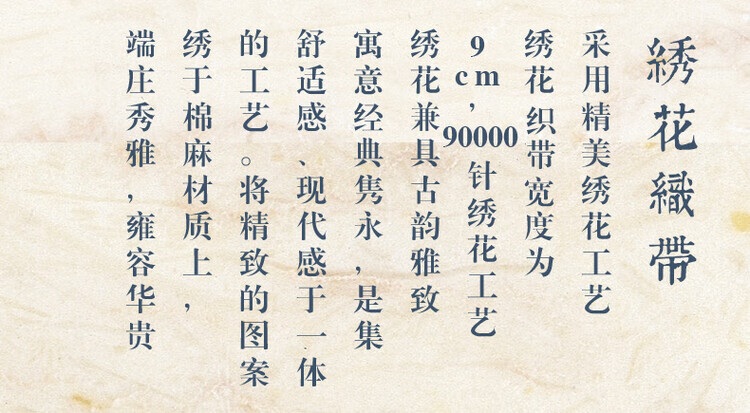 綉花織帶
采用精美绣花工艺
绣花织带宽度为
9cm，90000针绣花工艺
绣花兼具古韵雅致
寓意经典隽永，是集
舒适感、现代感于一体
的工艺。将精致的图案
绣于棉麻材质上，
端庄秀雅，雍容华贵